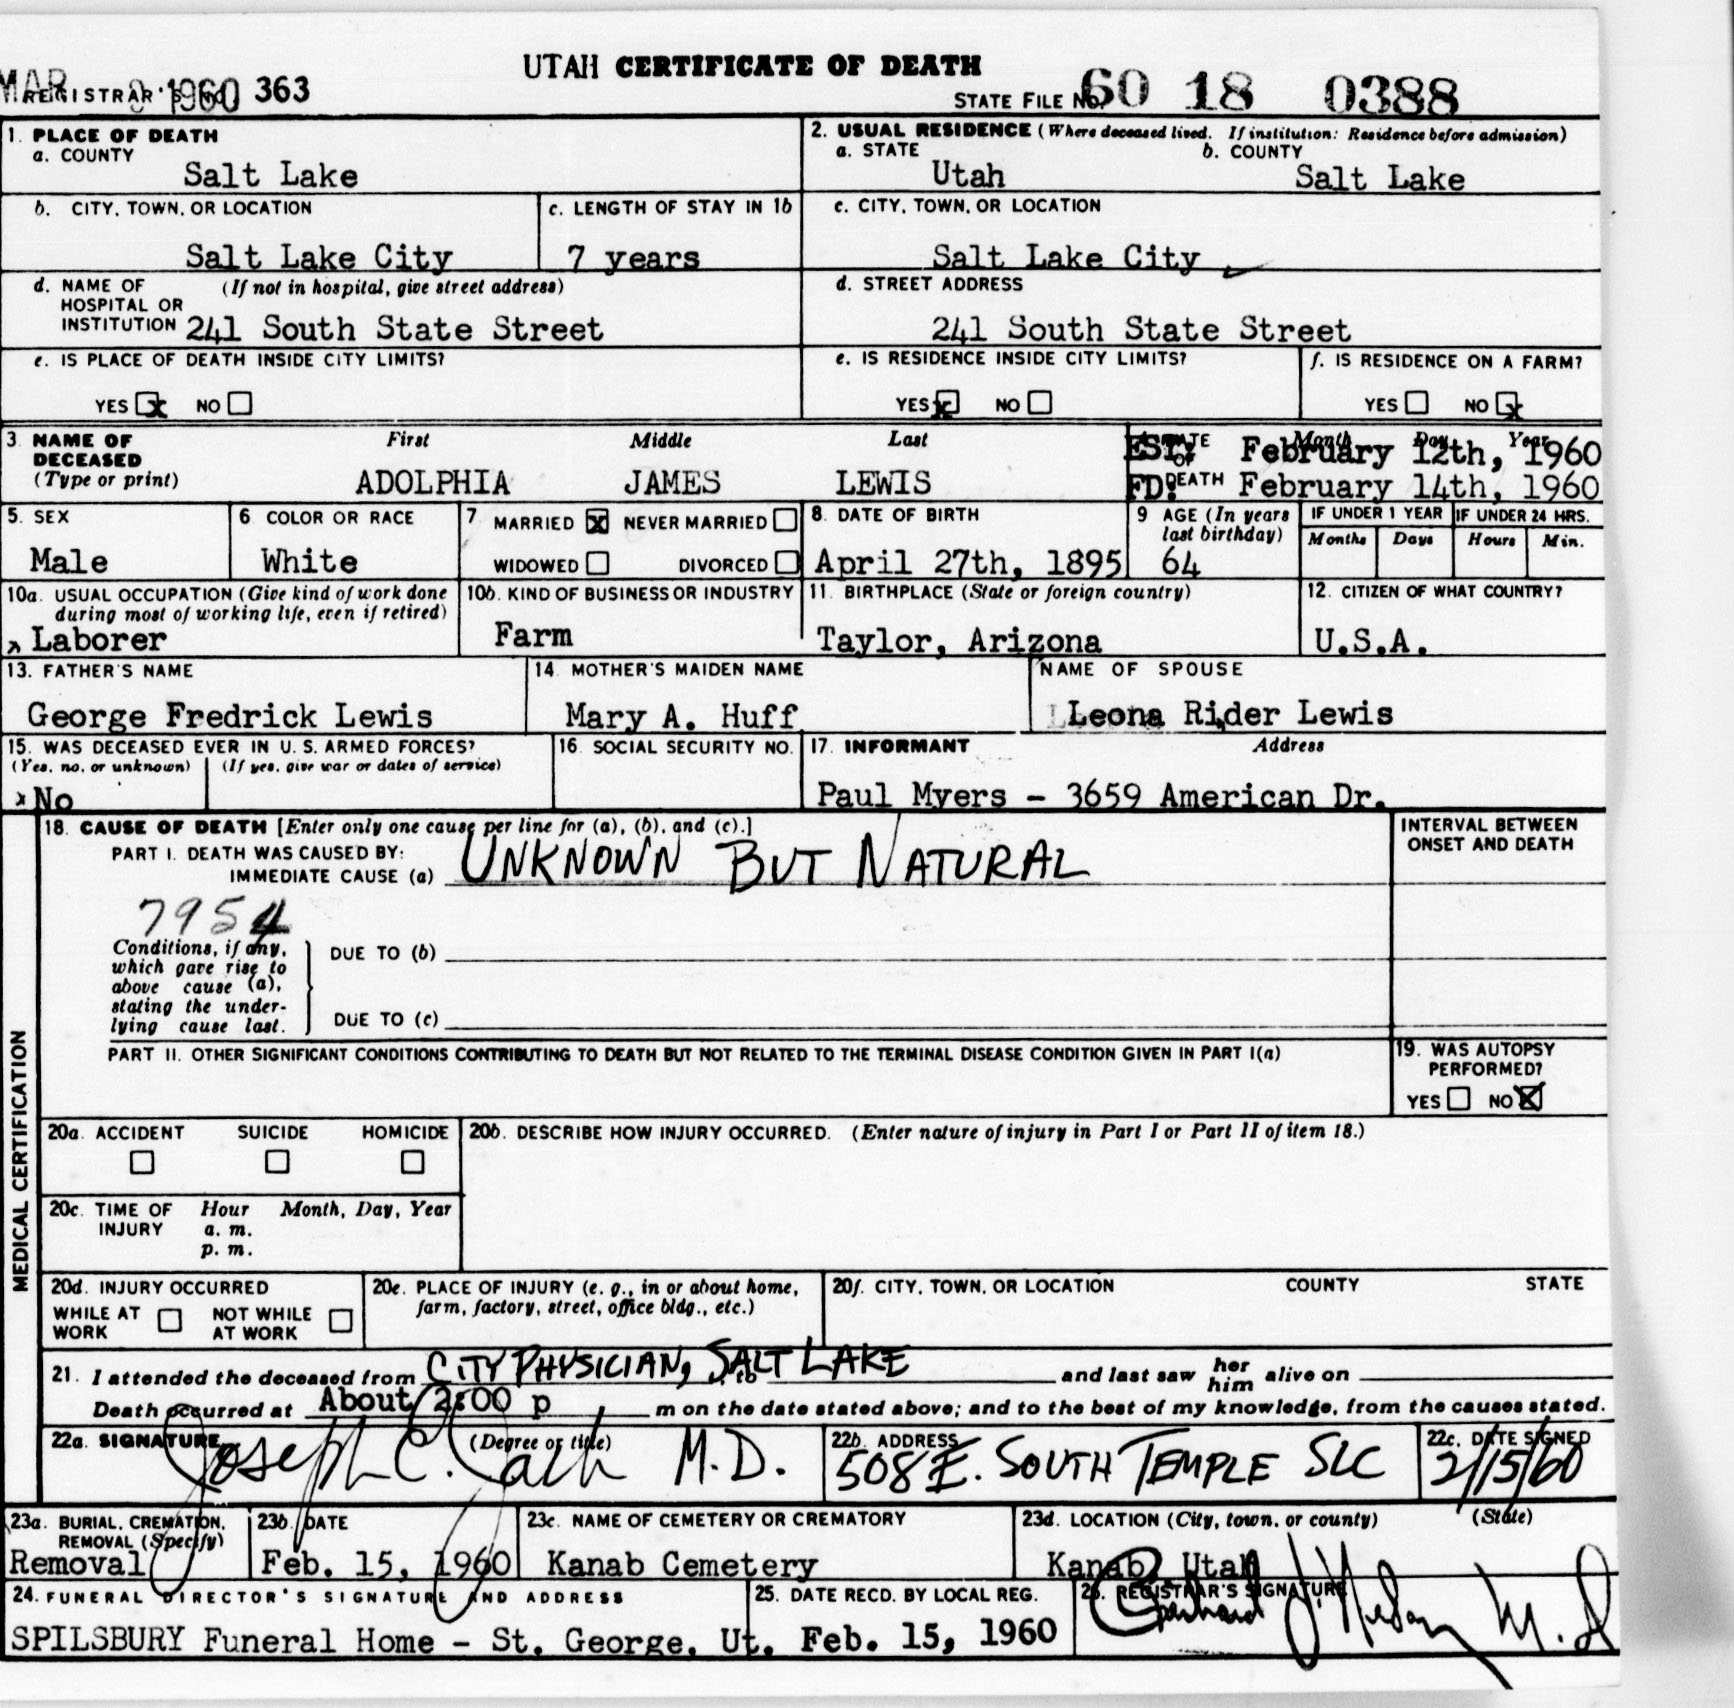 UTAH CERTIFICATE OF DEATH
MAR 1960 REGISTRAR'S No. 363
STATE FILE No. 60 18 0388
1. PLACE OF DEATH
a. COUNTY
Salt Lake
2. USUAL RESIDENCE (Where deceased lived. If institution: Residence before admission)
a. STATE b. COUNTY
Utah Salt Lake
b. CITY, TOWN, OR LOCATION c. LENGTH OF STAY IN 1b
Salt Lake City 7 years
c. CITY, TOWN, OR LOCATION
Salt Lake City
d. NAME OF HOSPITAL OR INSTITUTION (If not in hospital, give street address)
241 South State Street
d. STREET ADDRESS
241 South State Street
e. IS PLACE OF DEATH INSIDE CITY LIMITS?
YES x NO
e. IS RESIDENCE INSIDE CITY LIMITS?
YES x NO
f. IS RESIDENCE ON A FARM?
YES NO x
3. NAME OF DECEASED (Type or print)
First Middle Last
ADOLPHIA JAMES LEWIS
DATE OF DEATH Month Day Year
EST: February 12th, 1960
FD: February 14th, 1960
5. SEX
Male
6 COLOR OR RACE
White
7 MARRIED x NEVER MARRIED
WIDOWED DIVORCED
8. DATE OF BIRTH
April 27th, 1895
9 AGE (In years last birthday)
64
IF UNDER 1 YEAR IF UNDER 24 HRS.
Months Days Hours Min.
10a. USUAL OCCUPATION (Give kind of work done during most of working life, even if retired)
Laborer
10b. KIND OF BUSINESS OR INDUSTRY
Farm
11. BIRTHPLACE (State or foreign country)
Taylor, Arizona
12. CITIZEN OF WHAT COUNTRY?
U.S.A.
13. FATHER'S NAME
George Fredrick Lewis
14 MOTHER'S MAIDEN NAME
Mary A. Huff
NAME OF SPOUSE
Leona Rider Lewis
15. WAS DECEASED EVER IN U.S. ARMED FORCES?
(Yes, no, or unknown) (If yes, give war or dates of service)
x No
16. SOCIAL SECURITY NO.
17. INFORMANT Address
Paul Myers - 3659 American Dr.
MEDICAL CERTIFICATION
18. CAUSE OF DEATH [Enter only one cause per line for (a), (b), and (c).]
PART I. DEATH WAS CAUSED BY:
IMMEDIATE CAUSE (a) UNKNOWN BUT NATURAL
INTERVAL BETWEEN ONSET AND DEATH
7954
Conditions, if any, which gave rise to above cause (a), stating the underlying cause last.
DUE TO (b)
DUE TO (c)
PART II. OTHER SIGNIFICANT CONDITIONS CONTRIBUTING TO DEATH BUT NOT RELATED TO THE TERMINAL DISEASE CONDITION GIVEN IN PART I(a)
19. WAS AUTOPSY PERFORMED?
YES NO X
20a. ACCIDENT SUICIDE HOMICIDE
20b. DESCRIBE HOW INJURY OCCURRED. (Enter nature of injury in Part I or Part II of item 18.)
20c. TIME OF INJURY Hour Month, Day, Year
a. m.
p. m.
20d. INJURY OCCURRED
WHILE AT WORK NOT WHILE AT WORK
20e. PLACE OF INJURY (e. g., in or about home, farm, factory, street, office bldg., etc.)
20f. CITY, TOWN, OR LOCATION COUNTY STATE
21. I attended the deceased from CITY PHYSICIAN, SALT LAKE to and last saw her him alive on
Death occurred at About 2:00 p m on the date stated above; and to the best of my knowledge, from the causes stated.
22a. SIGNATURE (Degree or title)
Joseph C. M.D.
22b. ADDRESS
508 E. SOUTH TEMPLE SLC
22c. DATE SIGNED
2/15/60
23a. BURIAL, CREMATION, REMOVAL (Specify)
Removal
23b. DATE
Feb. 15, 1960
23c. NAME OF CEMETERY OR CREMATORY
Kanab Cemetery
23d. LOCATION (City, town, or county) (State)
Kanab, Utah
24. FUNERAL DIRECTOR'S SIGNATURE AND ADDRESS
SPILSBURY Funeral Home - St. George, Ut.
25. DATE RECD. BY LOCAL REG.
Feb. 15, 1960
26. REGISTRAR'S SIGNATURE
M.D